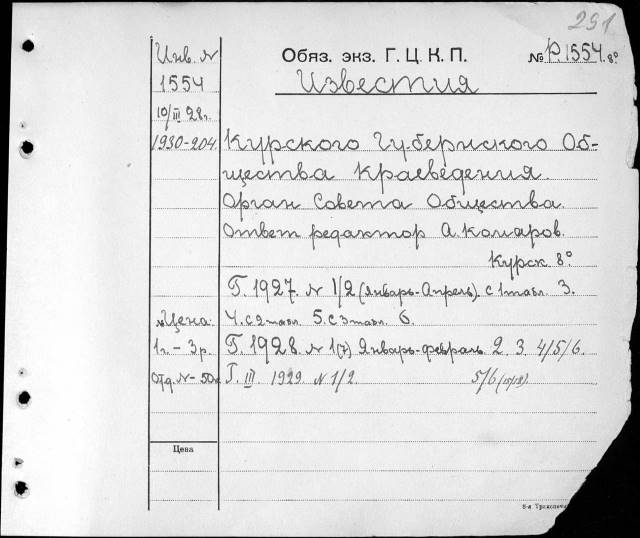 291
Инв. N
Обяз. экз. Г. Ц. К. П.
№ Р.1554. 8°
1554
Известия
10/III 28г.
1930-204.
Курского Губернского Об-
щества Краеведения.
Орган Совета Общества.
Ответ редактор А. Комаров.
Курск. 8°
Г. 1927. N 1/2 (Январь-Апрель). с 1 табл. 3.
Цена:
4. с 2 табл. 5. с 3 табл. 6.
1 г. – 3 р.
Г. 1928. N 1(7) Январь-февраль. 2. 3. 4/5/6.
Отд. N – 50к.
Г. III. 1929. N 1/2.
5/6
Цена